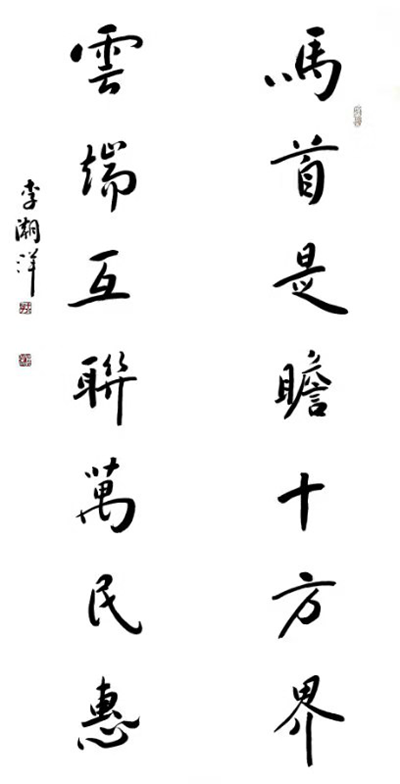 馬首是瞻十方界
雲端互聯萬民惠
李潮洋